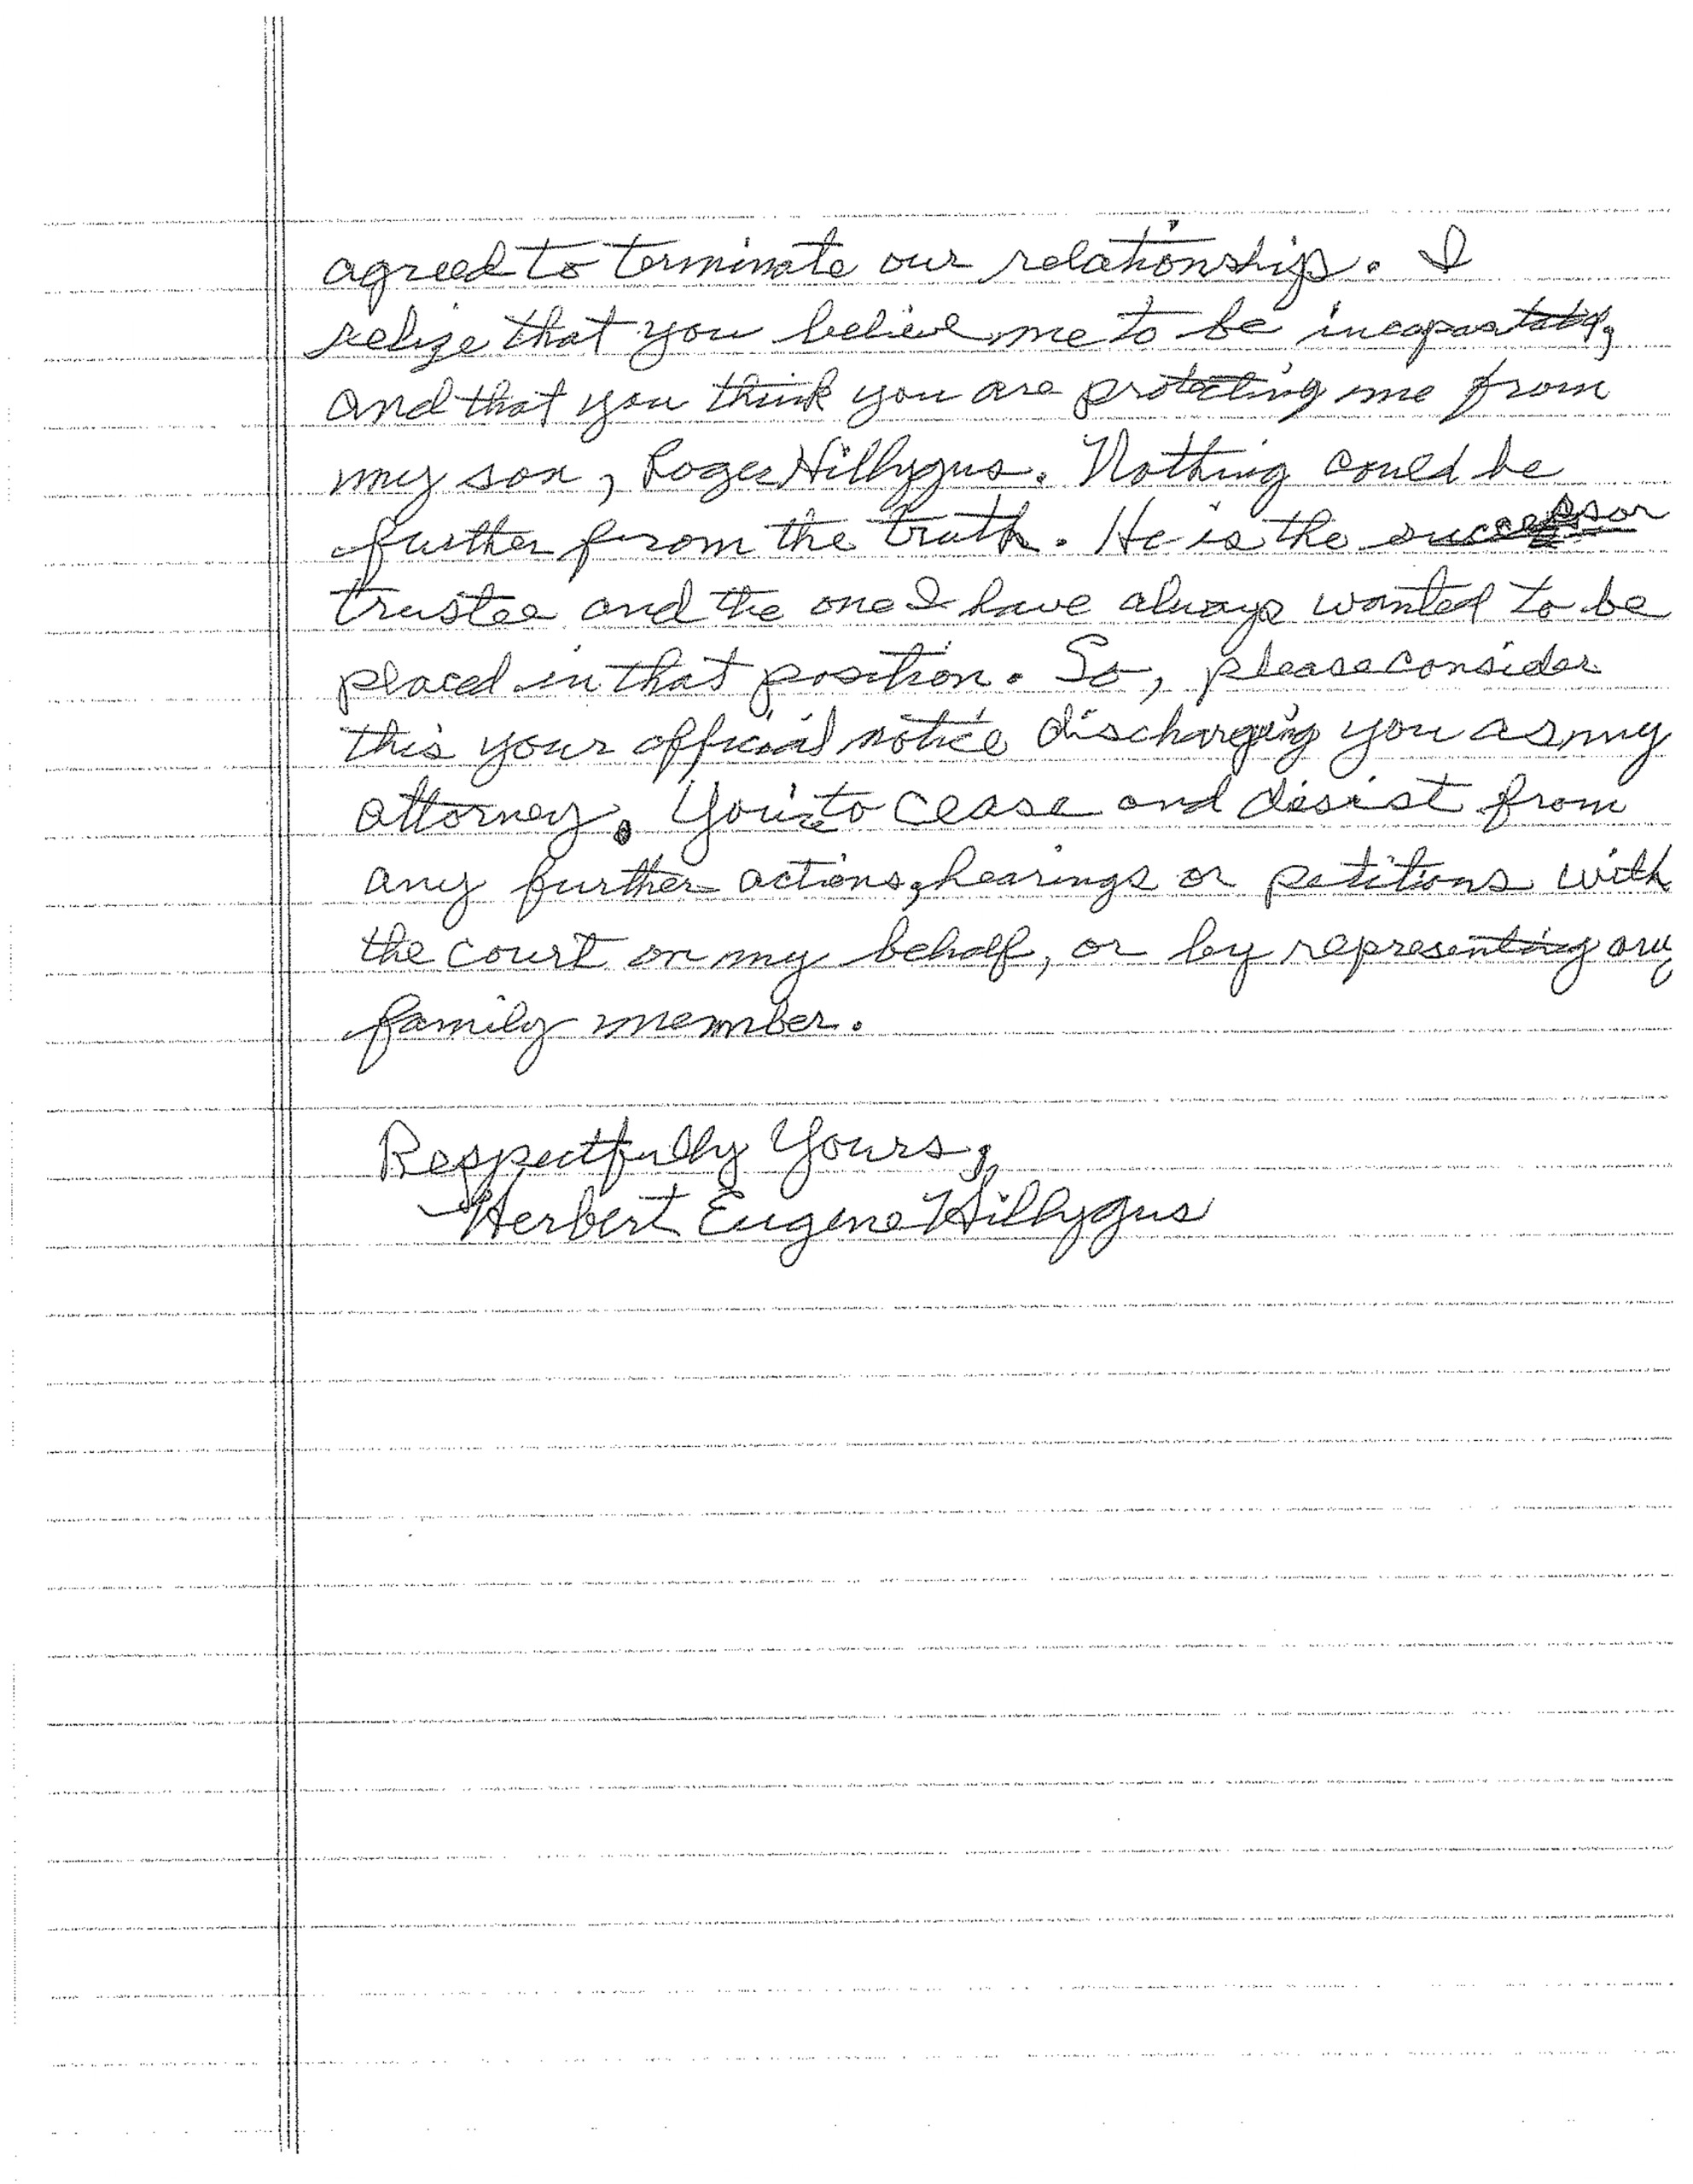 agreed to terminate our relationship. I
relize that you believe me to be
and that you think you are protecting me from
my son, Roger Hillygus. Nothing could be
further from the truth. He is the successor
trustee and the one I have always wanted to be
placed in that position. So, please consider
this your official notice discharging you as my
attorney. to cease and desist from
any further actions, hearings or petitions with
the court on my behalf, or by representing any
family member.
Respectfully Yours,
Herbert Eugene Hillygus